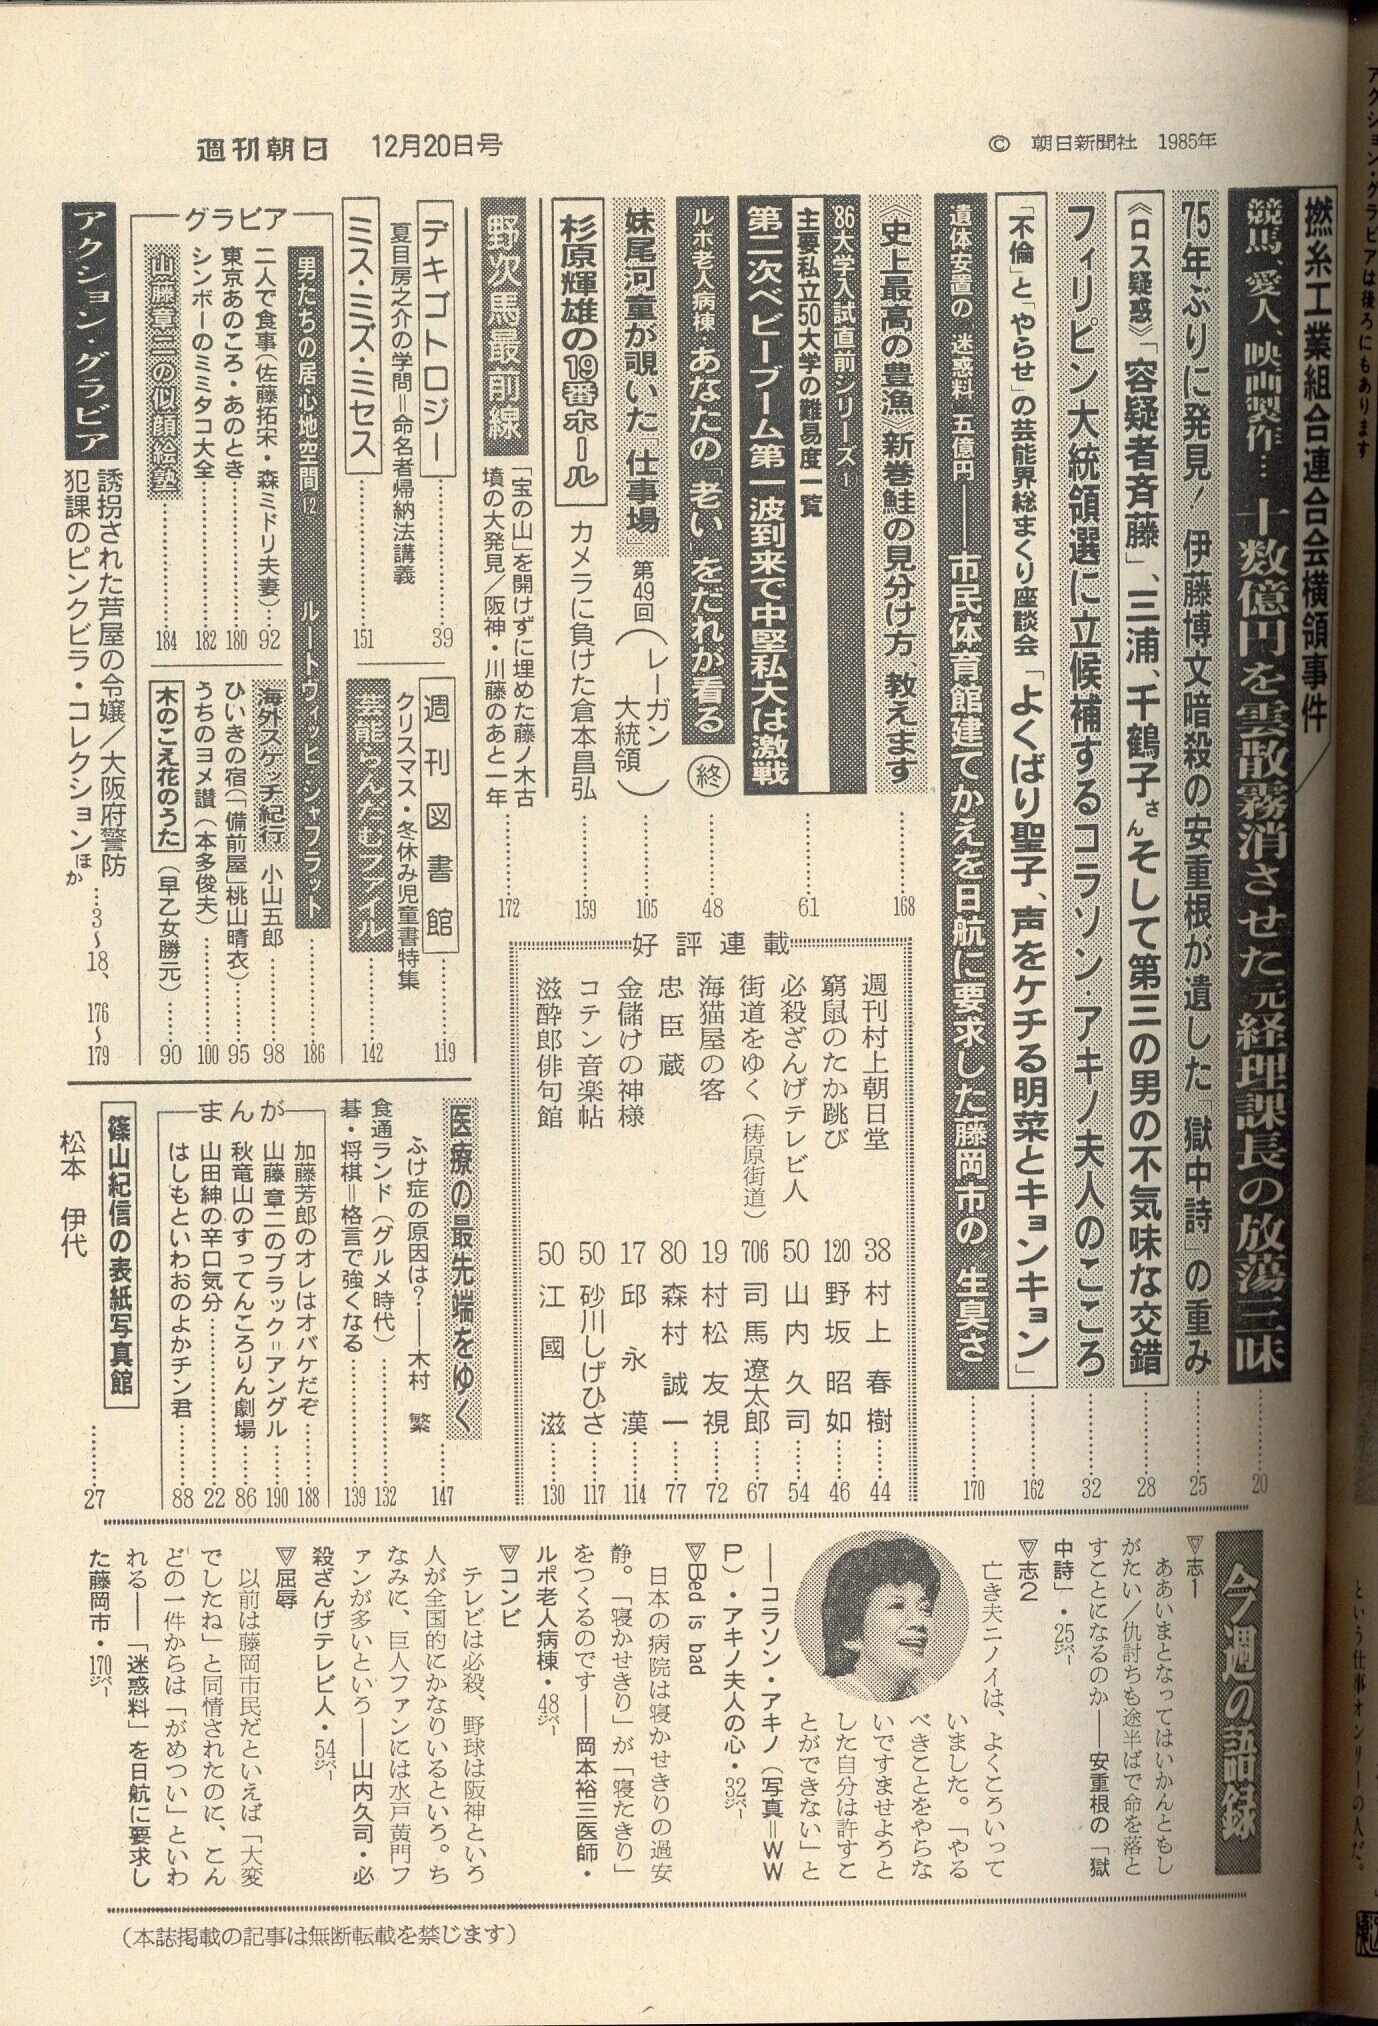 週刊朝日 12月20日号
© 朝日新聞社 1985年
撚糸工業組合連合会横領事件
競馬、愛人、映画製作…十数億円を雲散霧消させた元経理課長の放蕩三昧……20
75年ぶりに発見！ 伊藤博文暗殺の安重根が遺した「獄中詩」の重み……25
《ロス疑惑》「容疑者斉藤」、三浦、千鶴子さんそして第三の男の不気味な交錯……28
フィリピン大統領選に立候補するコラソン・アキノ夫人のこころ……32
「不倫」と「やらせ」の芸能界総まくり座談会「よくばり聖子、声をケチる明菜とキョンキョン」……162
遺体安置の“迷惑料”五億円──市民体育館建てかえを日航に要求した藤岡市の“生臭さ”……170
《史上最高の豊漁》新巻鮭の見分け方、教えます……168
'86大学入試直前シリーズ①
主要私立50大学の難易度一覧
第二次ベビーブーム第一波到来で中堅私大は激戦……61
ルポ老人病棟・あなたの「老い」をだれが看る 終……48
妹尾河童が覗いた「仕事場」 第49回（レーガン大統領）……105
杉原輝雄の19番ホール カメラに負けた倉本昌弘……159
野次馬最前線
「宝の山」を開けずに埋めた藤ノ木古
墳の大発見／阪神・川藤のあと一年……172
好評連載
週刊村上朝日堂 38 村上春樹……44
窮鼠のたか跳び 120 野坂昭如……46
必殺ざんげテレビ人 50 山内久司……54
街道をゆく（梼原街道） 706 司馬遼太郎……67
海猫屋の客 19 村松友視……72
忠臣蔵 80 森村誠一……77
金儲けの神様 17 邱永漢……114
コテン音楽帖 50 砂川しげひさ……117
滋酔郎俳句館 50 江國滋……130
デキゴトロジー……39
夏目房之介の学問＝命名者帰納法講義
ミス・ミズ・ミセス……151
週刊図書館……119
クリスマス・冬休み児童書特集
芸能らんだむファイル……142
グラビア
男たちの居心地空間⑫ ルートウィッヒ・シャフラット……186
二人で食事（佐藤拓宋・森ミドリ夫妻）…92
東京あのころ・あのとき……180
シンボーのミミタコ大全……182
山藤章二の似顔絵塾……184
海外スケッチ紀行 小山五郎……98
ひいきの宿（「備前屋」桃山晴衣）……95
うちのヨメ讃（本多俊夫）……100
木のこえ花のうた（早乙女勝元）……90
アクション・グラビア
誘拐された芦屋の令嬢／大阪府警防
犯課のピンクビラ・コレクションほか…3〜18、176〜179
医療の最先端をゆく
ふけ症の原因は？──木村 繁……147
食通ランド（グルメ時代）……132
碁・将棋＝格言で強くなる……139
まんが
加藤芳郎のオレはオバケだぞ……188
山藤章二のブラック＝アングル……190
秋竜山のすってんころりん劇場……86
山田紳の辛口気分……22
はしもといわおのよかチン君……88
篠山紀信の表紙写真館
松本 伊代……27
今週の語録
▽志1
ああいまとなってはいかんともし
がたい／仇討ちも途半ばで命を落と
すことになるのか──安重根の「獄
中詩」・25ページ
▽志2
亡き夫ニノイは、よくころいって
いました。「やる
べきことをやらな
いですませよろと
した自分は許すこ
とができない」と
──コラソン・アキノ（写真＝WW
P）・アキノ夫人の心・32ページ
▽Bed is bad
日本の病院は寝かせきりの過安
静。「寝かせきり」が「寝たきり」
をつくるのです──岡本裕三医師・
ルポ老人病棟・48ページ
▽コンビ
テレビは必殺、野球は阪神といろ
人が全国的にかなりいるといろ。ち
なみに、巨人ファンには水戸黄門フ
ァンが多いといろ──山内久司・必
殺ざんげテレビ人・54ページ
▽屈辱
以前は藤岡市民だといえば「大変
でしたね」と同情されたのに、こん
どの一件からは「がめつい」といわ
れる──「迷惑料」を日航に要求し
た藤岡市・170ページ
（本誌掲載の記事は無断転載を禁じます）
アクション・グラビアは後ろにもあります
という仕事オンリーの人だ。」